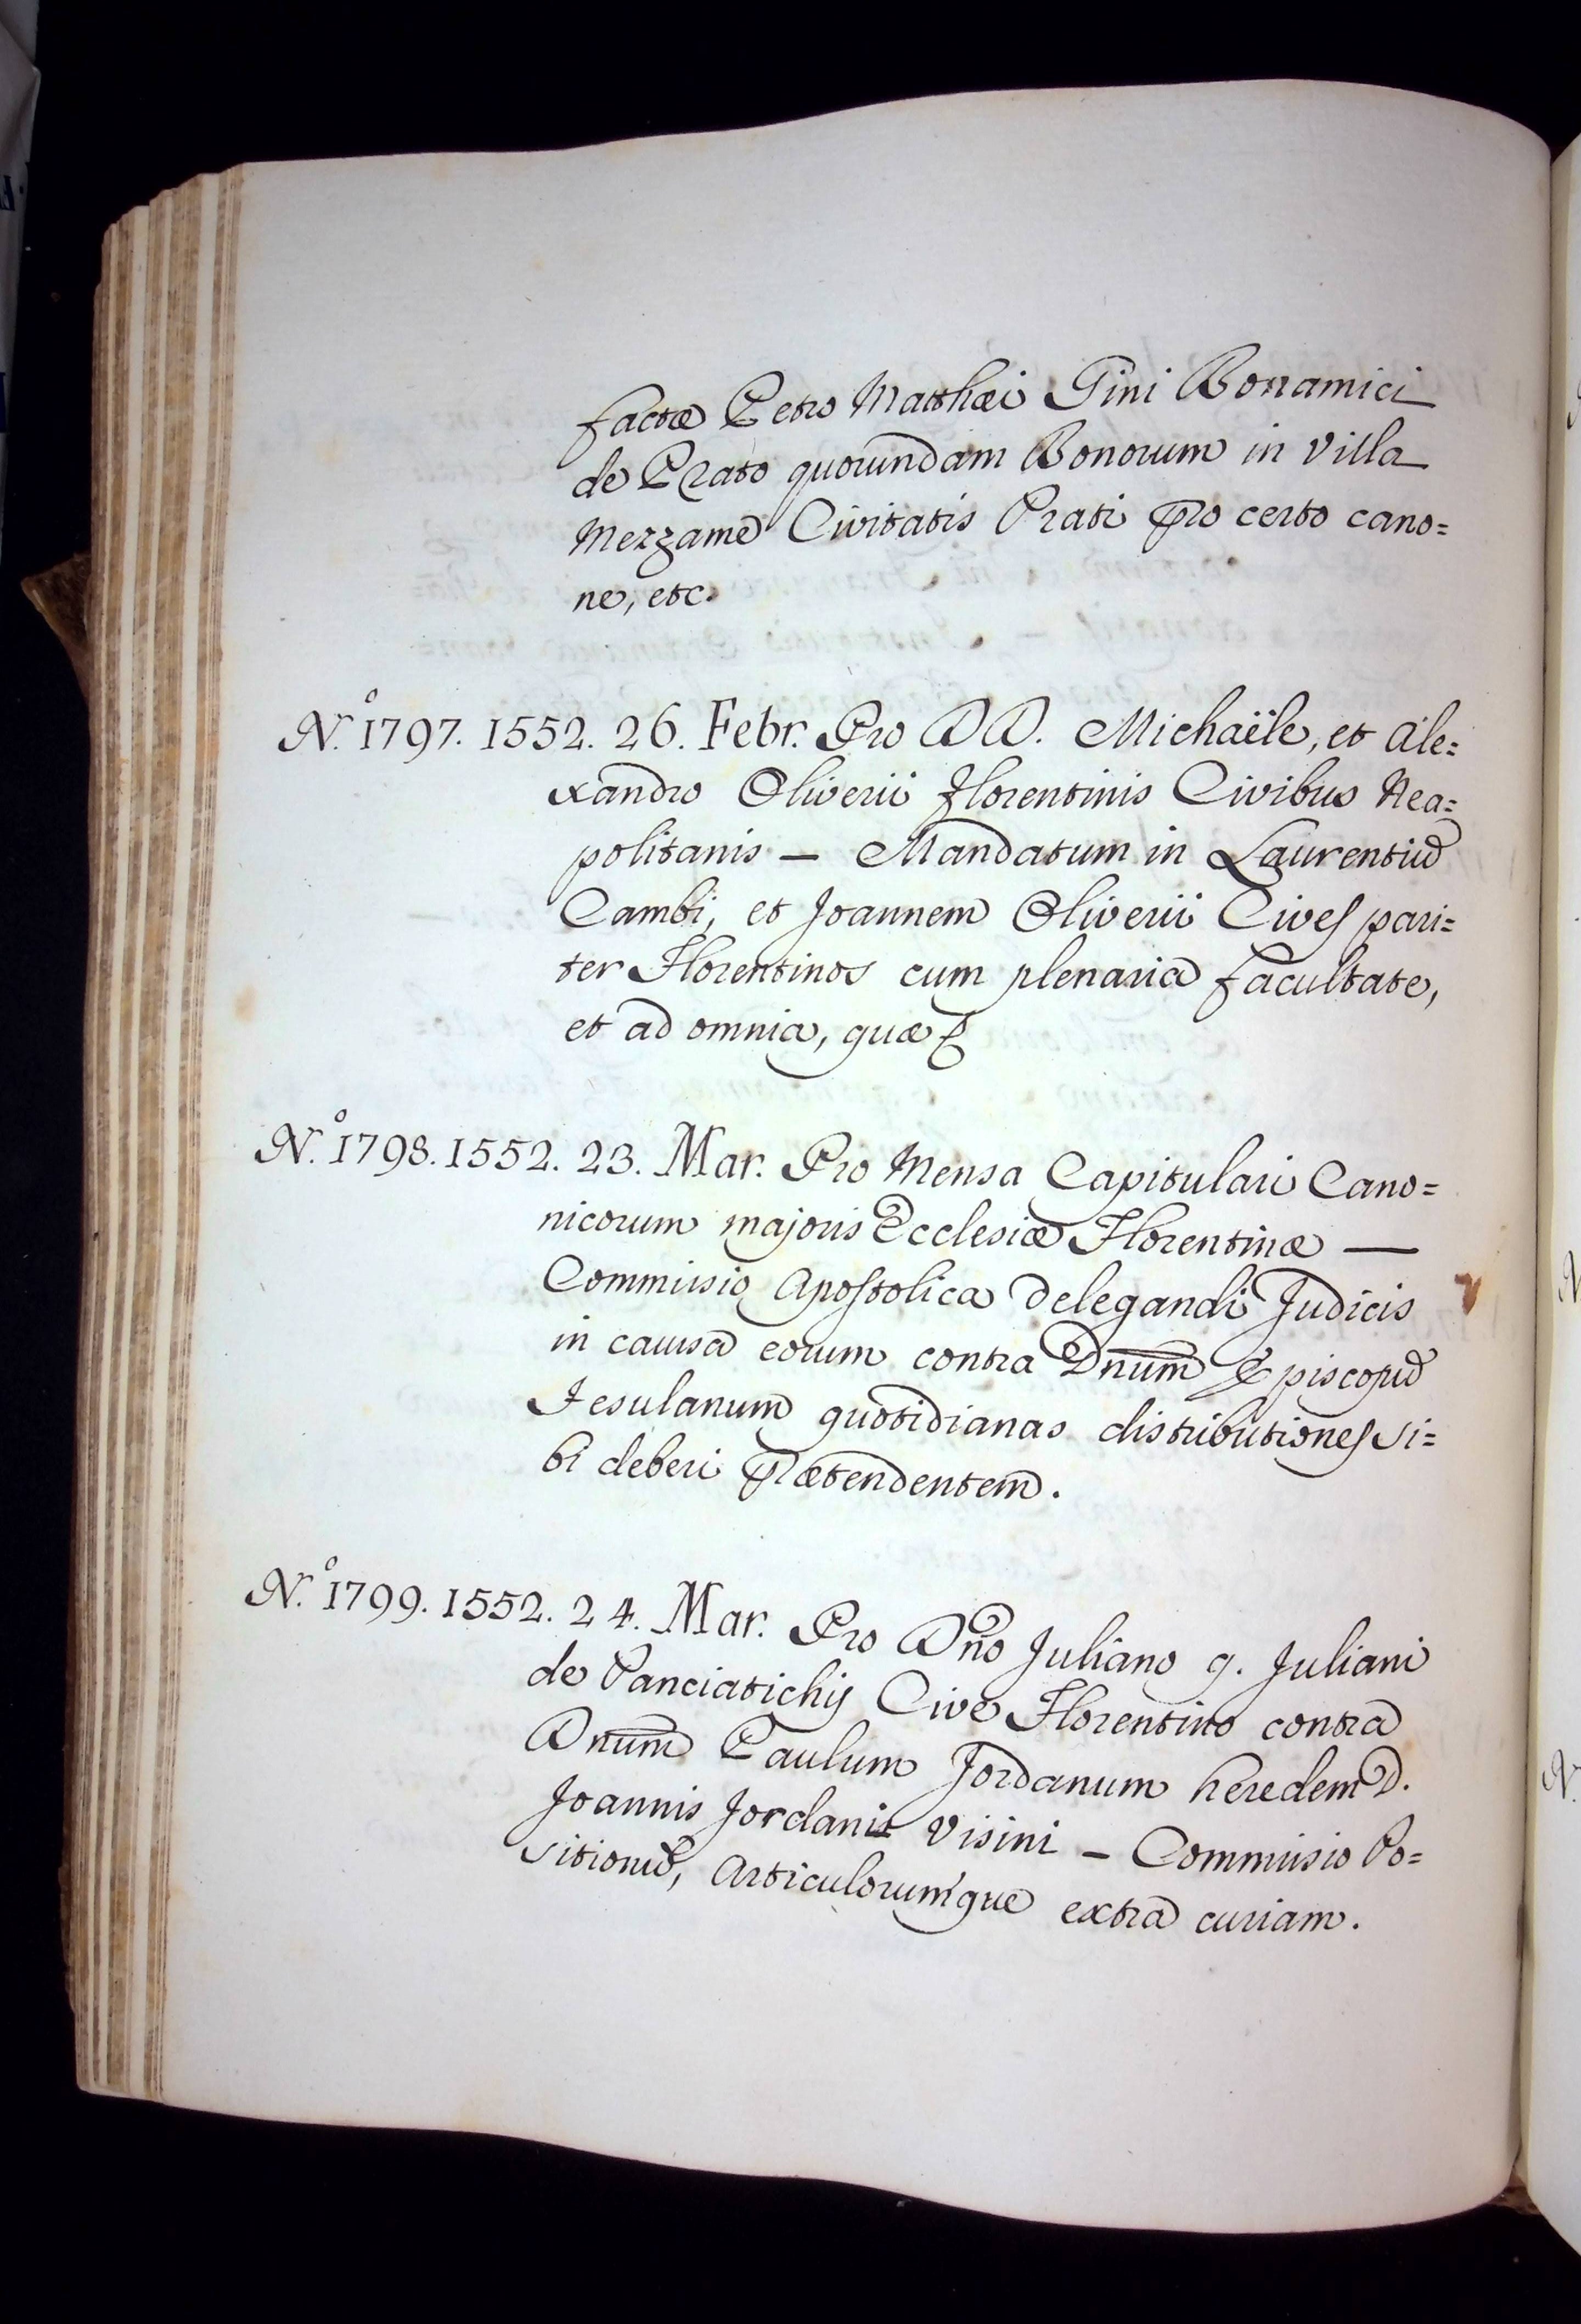 factæ Petro Matthæi Gini Bonamici
de Prato quorundam Bonorum in Villa
Mezzame Civitatis Prati pro certo cano=
ne, etc.
N.º 1797. 1552. 26. Febr. Pro DD. Michaële, et Ale=
xandro Oliverii Florentinis Civibus Nea=
politanis — Mandatum in Laurentiũ
Cambi, et Joannem Oliverii Cives pari=
ter Florentinos cum plenaria facultate,
et ad omnia, quæ
N.º 1798. 1552. 23. Mar. Pro Mensa Capitulari Cano=
nicorum majoris Ecclesiæ Florentinæ —
Commissio Apostolica delegandi Judicis
in causa eorum contra Dnum Episcopũ
Fesulanum quotidianas distributiones si=
bi deberi prætendentem.
N.º 1799. 1552. 24. Mar. Pro Dño Juliano q. Juliani
de Panciatichij Cive Florentino contra
Dnum Paulum Jordanum heredem D.
Joannis Jordanis Visini — Commissio Po=
sitionũ, Articulorumque extra curiam.